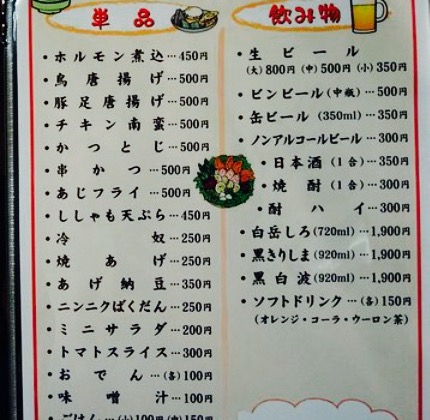 単品
・ホルモン煮込…450円
・鳥唐揚げ…500円
・豚足唐揚げ…500円
・チキン南蛮…500円
・かつとじ…500円
・串かつ…500円
・あじフライ…500円
・ししゃも天ぷら…450円
・冷奴…250円
・焼あげ…250円
・あげ納豆…350円
・ニンニクばくだん…250円
・ミニサラダ…200円
・トマトスライス…300円
・おでん…(各)100円
・味噌汁…100円
・ごはん…(小)100円(中)150円
飲み物
・生ビール
(大)800円(中)500円(小)350円
・ビンビール(中瓶)…500円
・缶ビール(350ml)…350円
・ノンアルコールビール…300円
・日本酒(1合)…350円
・焼酎(1合)…300円
・酎ハイ…300円
・白岳しろ(720ml)…1,900円
・黒きりしま(920ml)…1,900円
・黒白波(920ml)…1,900円
・ソフトドリンク…(各)150円
(オレンジ・コーラ・ウーロン茶)